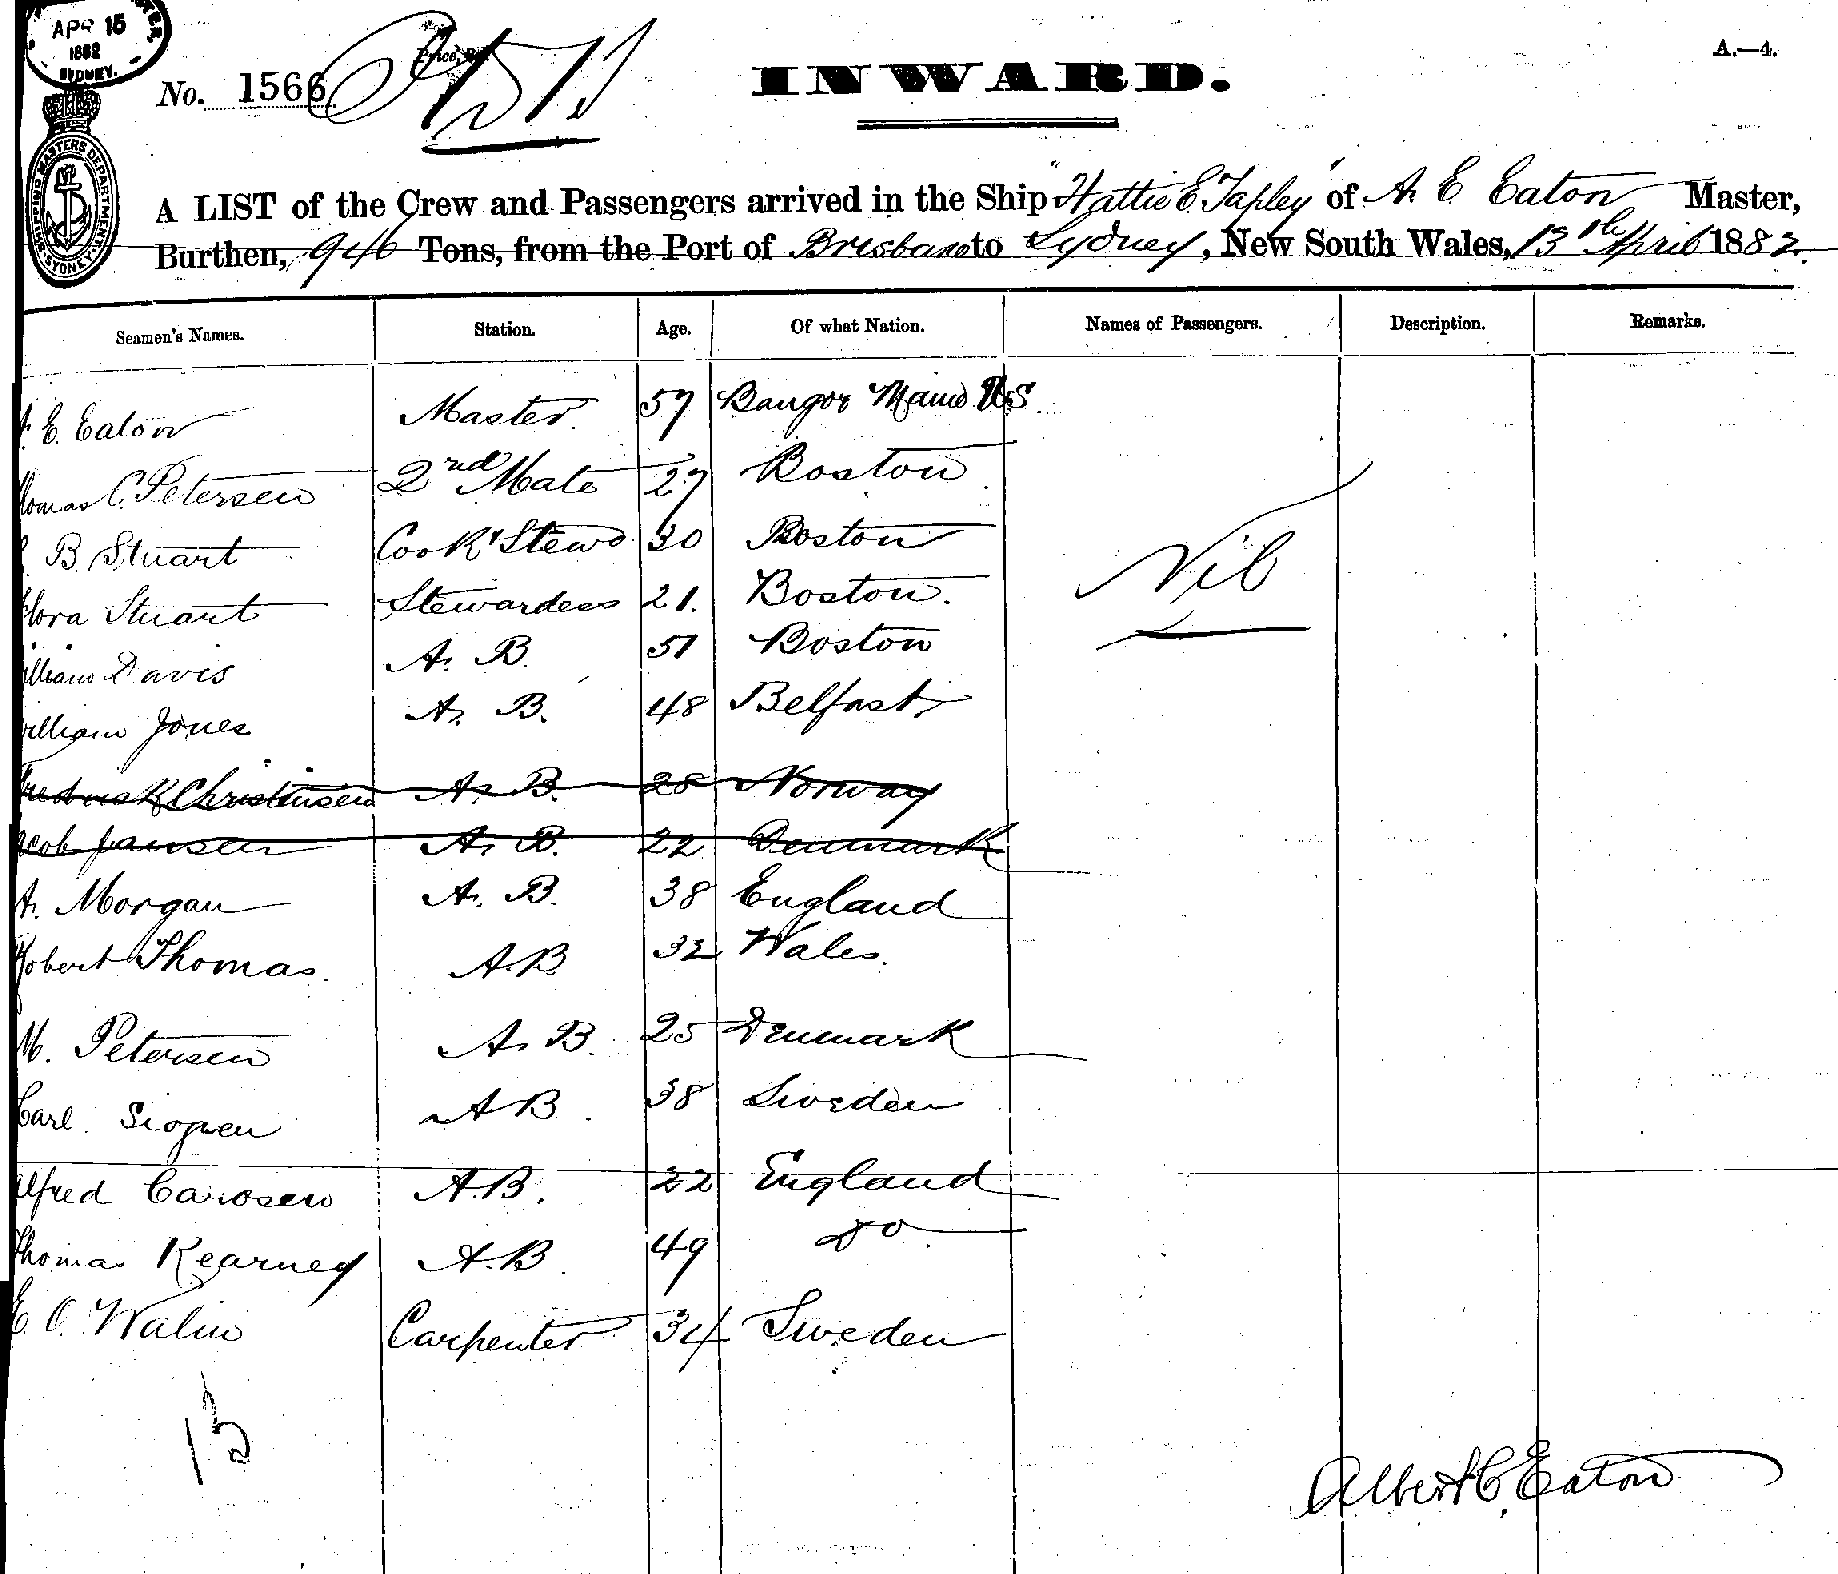 APR 15
1882
SYDNEY.
SHIPPING MASTERS DEPARTMENT
SYDNEY
No. 1566
A.—4.
INWARD.
A LIST of the Crew and Passengers arrived in the Ship "Hattie E. Tapley" of A. E Eaton Master,
Burthen, 946 Tons, from the Port of Brisbane to Sydney, New South Wales, 13th April 1882.
Seamen's Names. Station. Age. Of what Nation. Names of Passengers. Description. Remarks.
E. Eaton Master. 57 Bangor Maine U.S
C. Petersen 2nd Mate 27 Boston
B. Stuart Cook & Stewd 30 Boston
Flora Stuart Stewardess 21. Boston.
Nil
William Davis A. B. 51 Boston
William Jones A. B. 48 Belfast
Christinsen A. B. 28 Norway
Jacob Jansen A. B. 22 Denmark
A. Morgan A. B. 38 England
Robert Thomas. A.B 32 Wales.
M. Petersen A. B. 25 Denmark
Carl. A B. 38 Sweden
Alfred A.B. 22 England
Thomas Kearney A.B 49 do
E. O. Walin Carpenter 34 Sweden
Albert C. Eaton